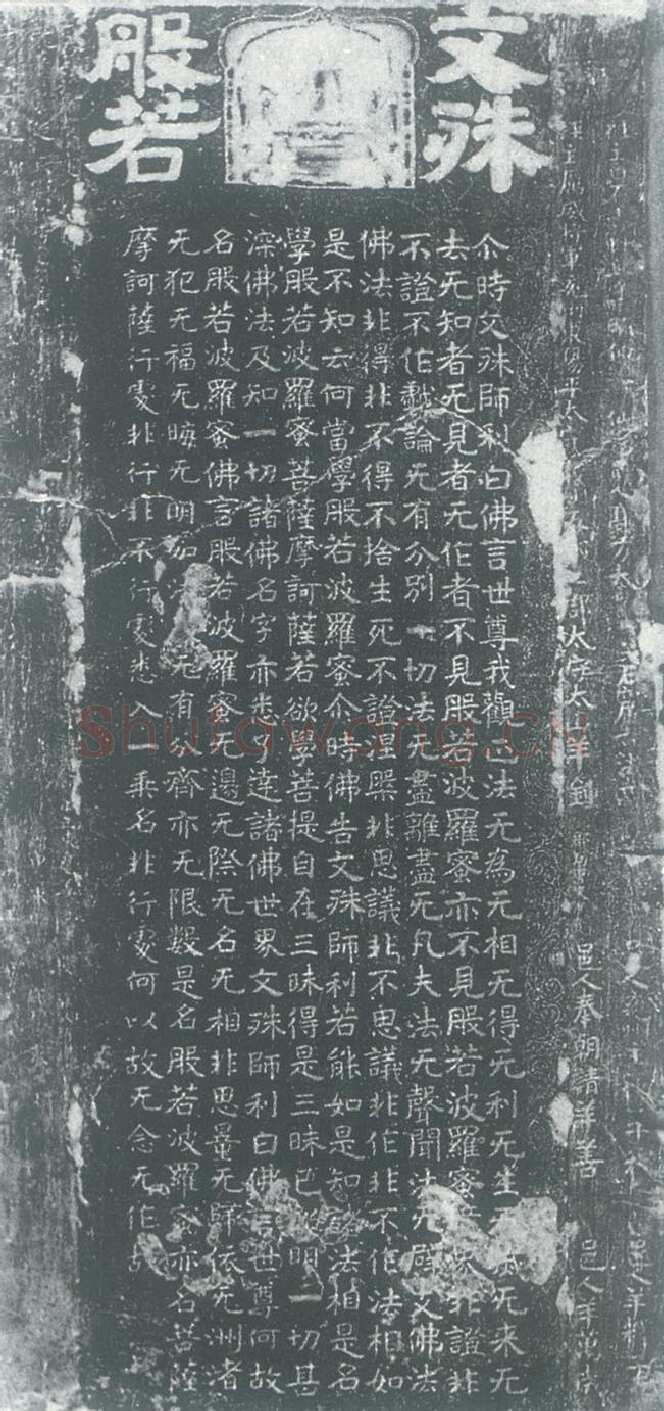 文殊
般若
尒時文殊師利白佛言世尊我觀正法无為无相无得无利无生无滅无来无
去无知者无見者无作者不見般若波羅蜜亦不見般若波羅蜜境界非證非
不證不作戲論无有分別一切法无盡離盡无凡夫法无聲聞法无辟支佛法
佛法非得非不得不捨生死不證涅槃非思議非不思議非作非不作法相如
是不知云何當學般若波羅蜜尒時佛告文殊師利若能如是知諸法相是名
學般若波羅蜜菩薩摩訶薩若欲學菩提自在三昧得是三昧已照明一切甚
深佛法及知一切諸佛名字亦悉了達諸佛世界文殊師利白佛言世尊何故
名般若波羅蜜佛言般若波羅蜜无邊无際无名无相非思量无歸依无洲渚
无犯无福无晦无明如法界无有分齊亦无限數是名般若波羅蜜亦名菩薩
摩訶薩行處非行非不行處悉入一乘名非行處何以故无念无作故
郡太守太 羊釗 邑人奉朝請羊善 邑人羊
shufawang.cn